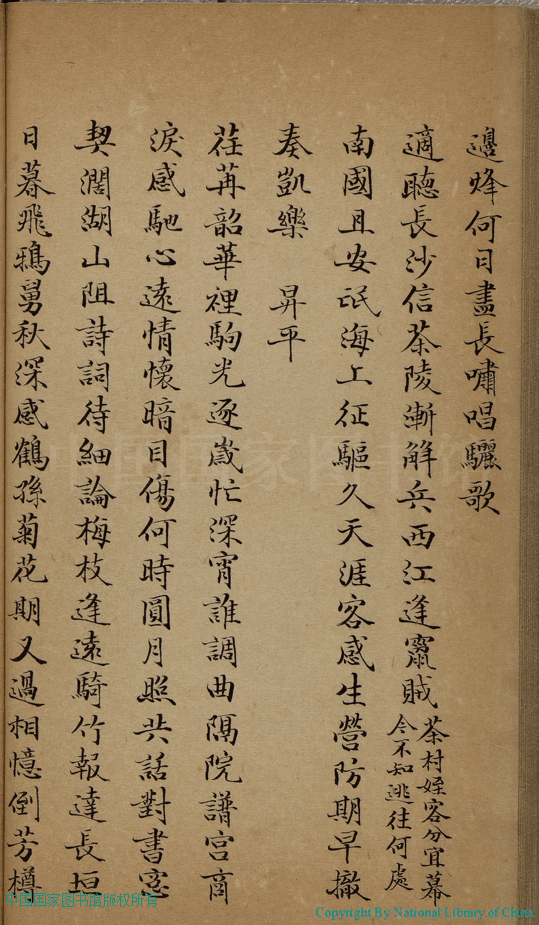 邊烽何日盡長嘯唱驪歌
適聽長沙信茶陵漸解兵西江逢竄賊茶村姪客分宜幕
今不知逃往何處
南國且安氓海上征驅久天涯客感生營防期早撤
奏凱樂昇平
荏苒韶華裡駒光逐歲忙深宵誰調曲隔院譜宮商
淚感馳心遠情懷暗目傷何時圓月照共話對書窓
契濶湖山阻詩詞待細論梅枝逢遠騎竹報達長垣
日暮飛鴉舅秋深感鶴孫菊花期又過相憶倒芳樽
中国国家图书馆版权所有
Copyright By National Library of China